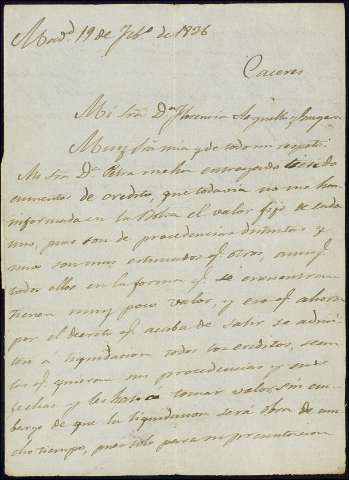 Mad.d 19 de Feb.o de 1836
Caceres
Mi Sra D.a Florencia
Muy Sra mia y de todo mi respeto:
Mi Sra D.a me ha entregado
de credito, que todavia no me han
informado en la Bolsa el valor fijo de cada
uno, pues son de procedencias distintas y
unos son mas estimados q.e otros, aunq.e
todos ellos en la forma q.e se encuentran
tienen muy poco valor, y eso q.e ahora
por el decreto q.e acaba de salir se admi-
ten á liquidacion todos los creditos, sean
las q.e quieran sus procedencias y sus
fechas y les hará tomar valor, sin em-
bargo de que la liquidacion será obra de mu-
cho tiempo, pues solo para su presentacion